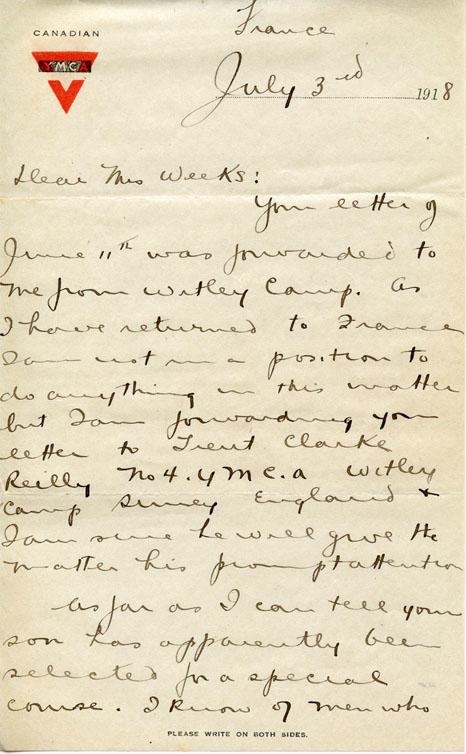 CANADIAN
YMCA
France
July 3rd 1918
Dear Mrs Weeks:
Your letter of
June 11th was forwarded to
me from Witley Camp. As
I have returned to France
I am not in a position to
do anything in this matter
but I am forwarding your
letter to Lieut Clarke
Reilly No 4. Y M C. A Witley
Camp Surrey England +
I am sure he will give the
matter his prompt attention
As far as I can tell your
son has apparently been
selected for a special
course. I know of men who
PLEASE WRITE ON BOTH SIDES.